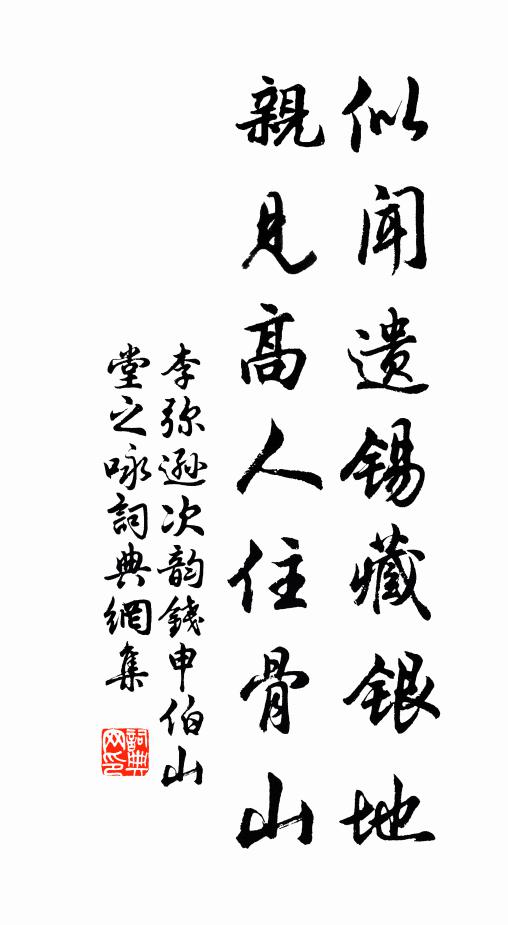 似闻遗锡藏银地
親见高人住骨山
李弥遜次韵錢申伯山
堂之咏詞典網集
詞典
网印